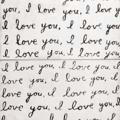 you, I love you, I love
I love you, I love you,
you, I love you, I love
I love you, I love you.
I love you, I love you
love you, I love you, I love
I love you, I love you
love you, I love you,
I love you, I love you